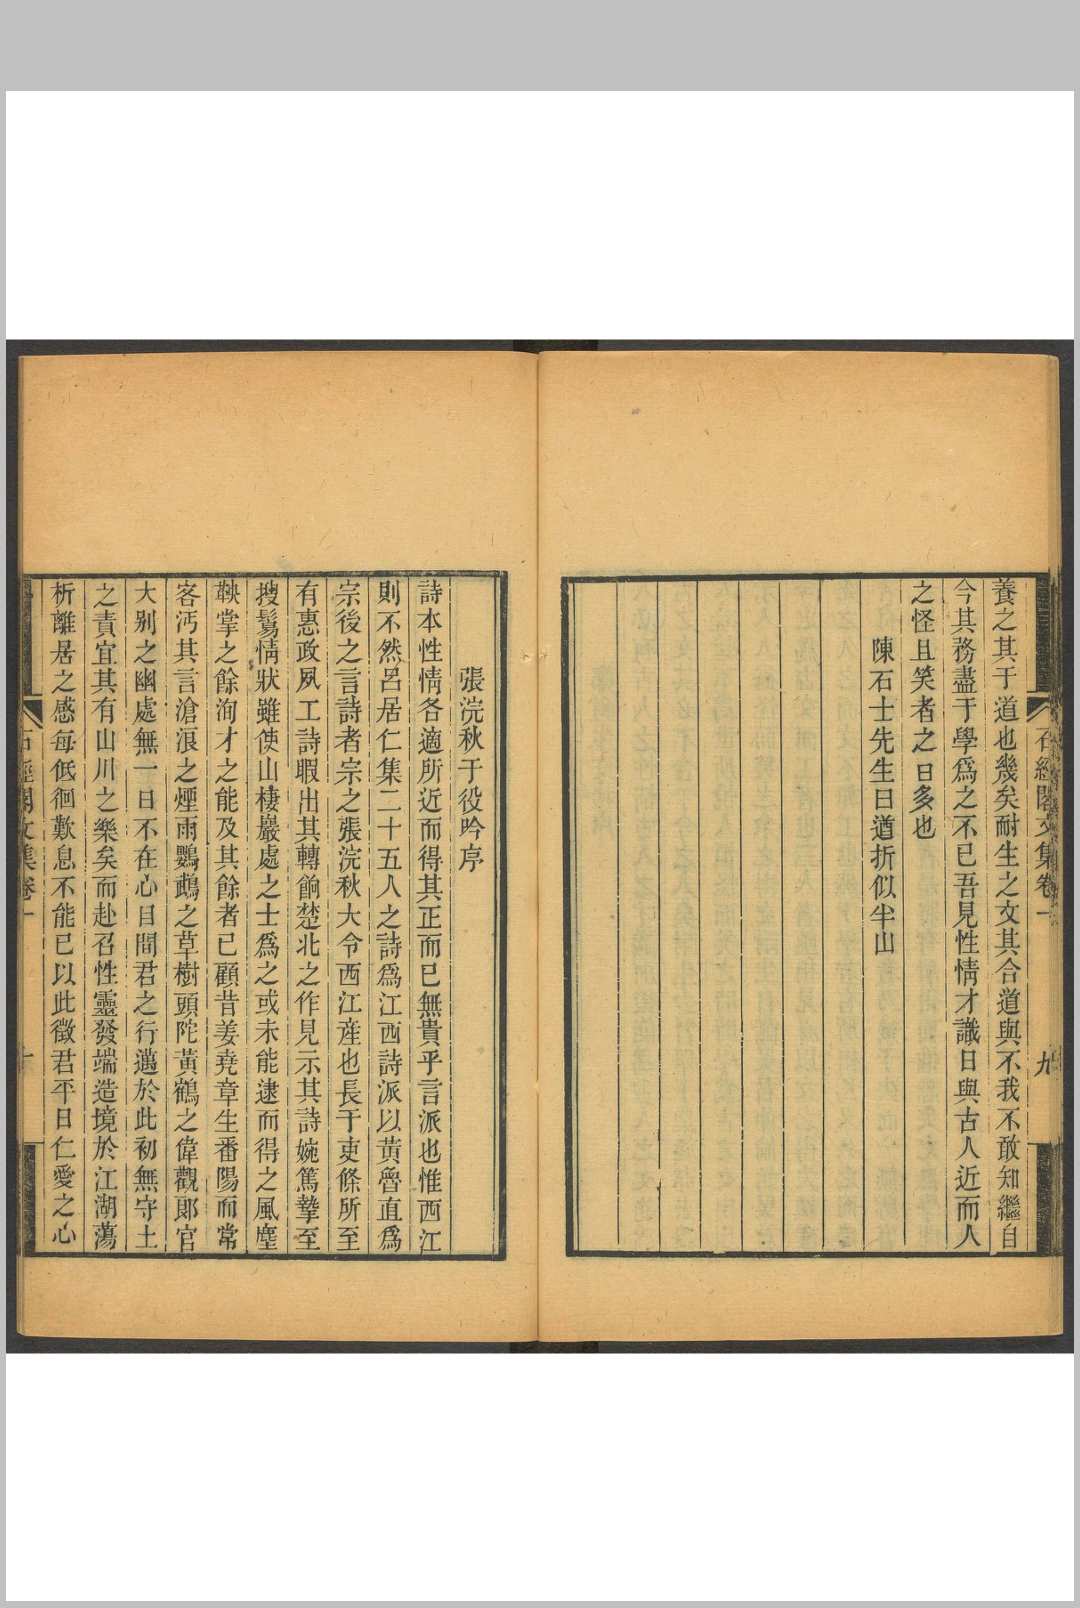 養之其于道也幾矣耐生之文其合道與不我不敢知繼自
今其務盡于學為之不已吾見性情才識日與古人近而人
之怪且笑者之日多也
陳石士先生曰遒折似半山
石經閣文集卷一
九
張浣秋于役吟序
詩本性情各適所近而得其正而已無貴乎言派也惟西江
則不然呂居仁集二十五人之詩為江西詩派以黃魯直為
宗後之言詩者宗之張浣秋大令西江產也長于吏條所至
有惠政夙工詩暇出其轉餉楚北之作見示其詩婉篤摯至
搜鬎情狀雖使山棲巖處之士為之或未能逮而得之風塵
鞅掌之餘洵才之能及其餘者已顧昔姜堯章生番陽而常
客沔其言滄浪之煙雨鸚鵡之草樹頭陀黃鶴之偉觀郎官
大别之幽處無一日不在心目間君之行邁於此初無守土
之責宜其有山川之樂矣而赴召性靈發端造境於江湖蕩
析離居之感每低徊歎息不能已以此徵君平日仁愛之心
石經閣文集卷一
十